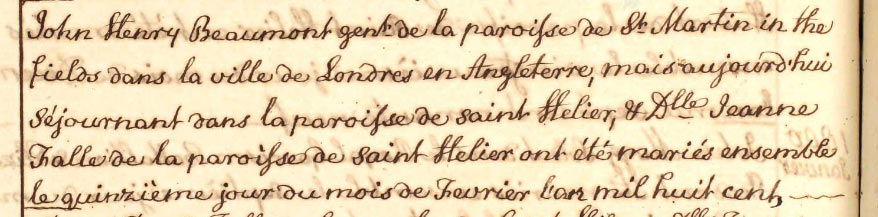 John Henry Beaumont gent: de la paroisse de St. Martin in the
fields dans la ville de Londres en Angleterre, mais aujourd'hui
Séjournant dans la paroisse de saint Helier, & Dlle Jeanne
Falle de la paroisse de saint Helier ont été mariés ensemble
le quinzième jour du mois de Fevrier l'an mil huit cent,